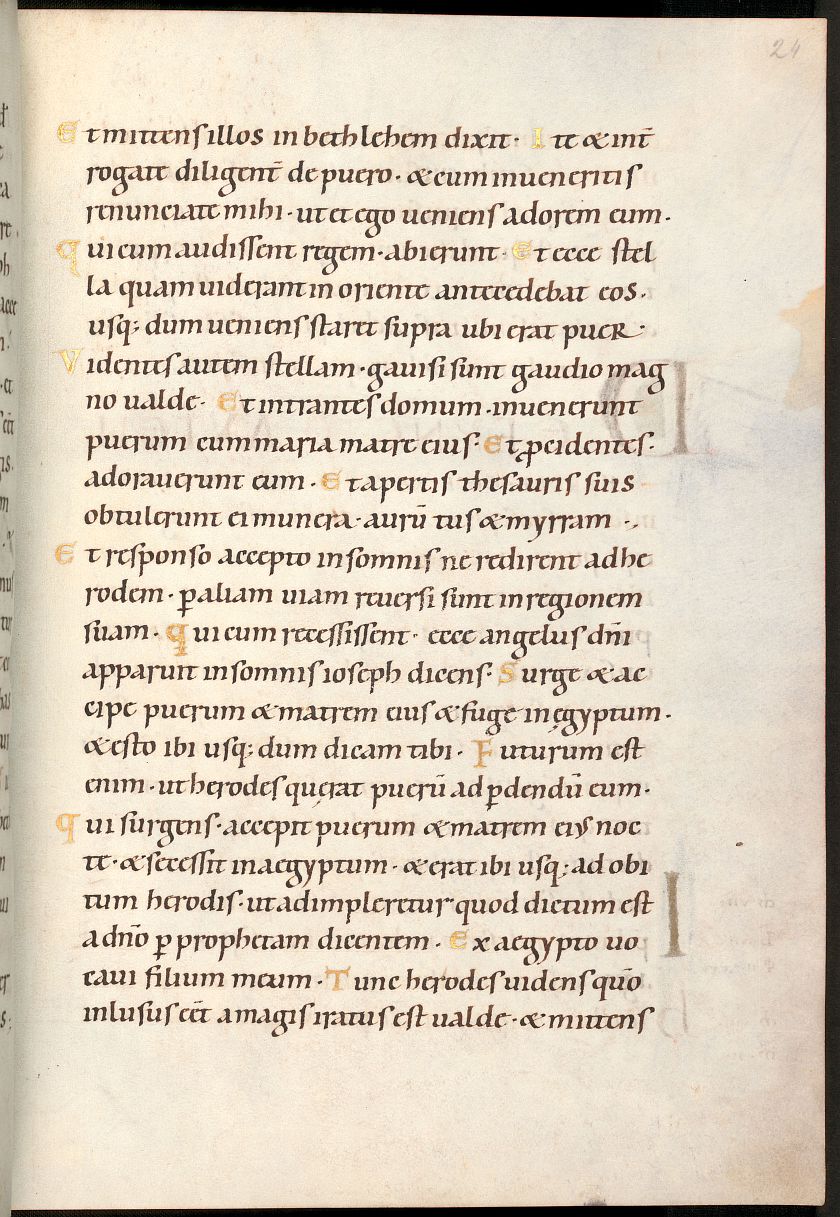 24
Et mittens illos in bethlehem dixit· Ite & int̄
rogate diligent̄ de puero· & cum inueneritis
renunciate mihi· ut et ego ueniens adorem eum·
qui cum audissent regem· abierunt· Et ecce stel
la quam uiderant in oriente antecedebat eos·
usq; dum ueniens staret supra ubi erat puer·
Videntes autem stellam· gauisi sunt gaudio mag
no ualde· Et intrantes domum· inuenerunt
puerum cum maria matre eius· Et ꝓcidentes·
adorauerunt eum· Et apertis thesauris suis
obtulerunt ei munera· aurū tus & myrram ·,
Et responso accepto in somnis ne redirent ad he
rodem· ꝑ aliam uiam reuersi sunt in regionem
suam· qui cum recessissent· ecce angelus dn̄i
apparuit in somnis ioseph dicens· Surge & ac
cipe puerum & matrem eius & fuge in ęgyptum·
& esto ibi usq; dum dicam tibi· Futurum est
enim· ut herodes quęrat puerū ad ꝑdendū eum·
qui surgens· accepit puerum & matrem eius noc
te· & secessit in aegyptum· & erat ibi usq; ad obi
tum herodis· ut adimpleretur quod dictum est
a dn̄o ꝑ prophetam dicentem· Ex aegypto uo
caui filium meum· Tunc herodes uidens qūo
inlusus eēt a magis iratus est ualde· & mittens